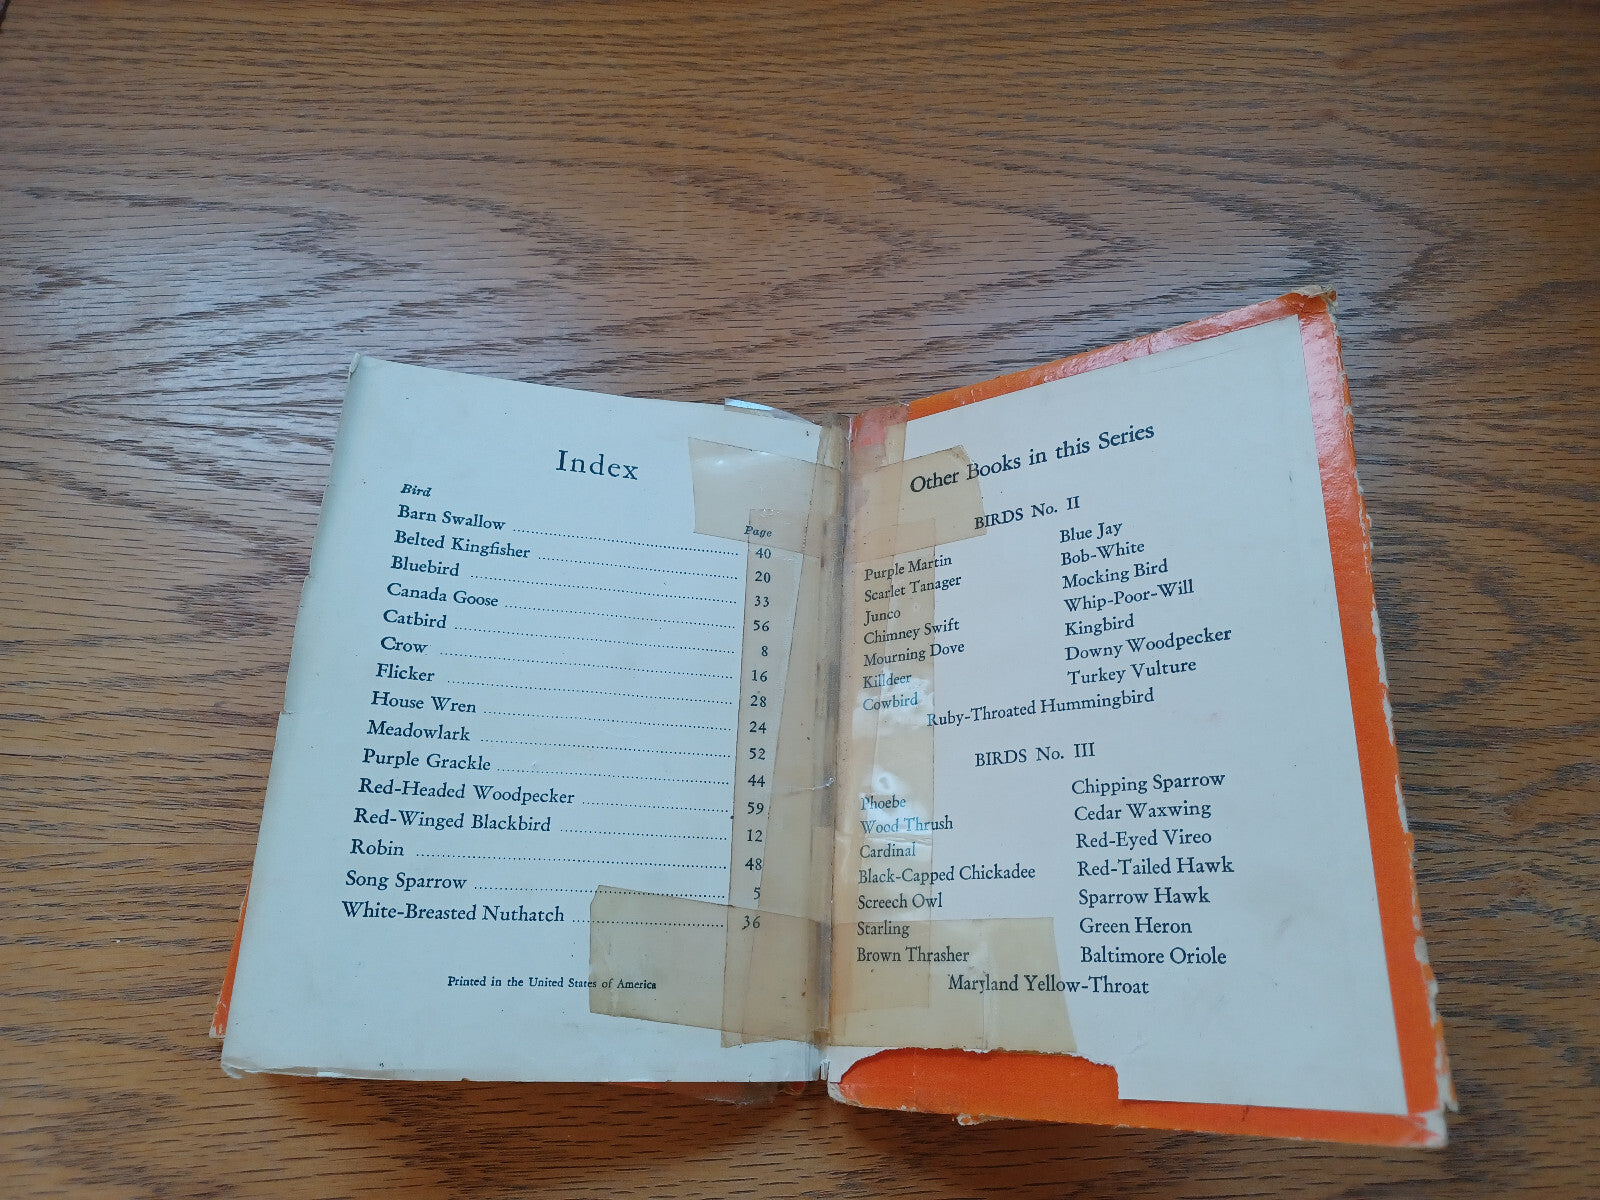 Index
Bird Page
Barn Swallow 40
Belted Kingfisher 20
Bluebird 33
Canada Goose 56
Catbird 8
Crow 16
Flicker 28
House Wren 24
Meadowlark 52
Purple Grackle 44
Red-Headed Woodpecker 59
Red-Winged Blackbird 12
Robin 48
Song Sparrow 5
White-Breasted Nuthatch 36
Printed in the United States of America
Other Books in this Series
BIRDS No. II
Purple Martin Blue Jay
Scarlet Tanager Bob-White
Junco Mocking Bird
Chimney Swift Whip-Poor-Will
Mourning Dove Kingbird
Killdeer Downy Woodpecker
Cowbird Turkey Vulture
Ruby-Throated Hummingbird
BIRDS No. III
Phoebe Chipping Sparrow
Wood Thrush Cedar Waxwing
Cardinal Red-Eyed Vireo
Black-Capped Chickadee Red-Tailed Hawk
Screech Owl Sparrow Hawk
Starling Green Heron
Brown Thrasher Baltimore Oriole
Maryland Yellow-Throat